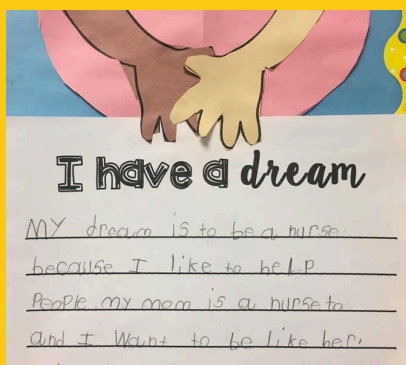 I have a dream
MY dream is to be a nurse
because I like to help
PeoPle. my mom is a nurse to
and I Want to be like her.